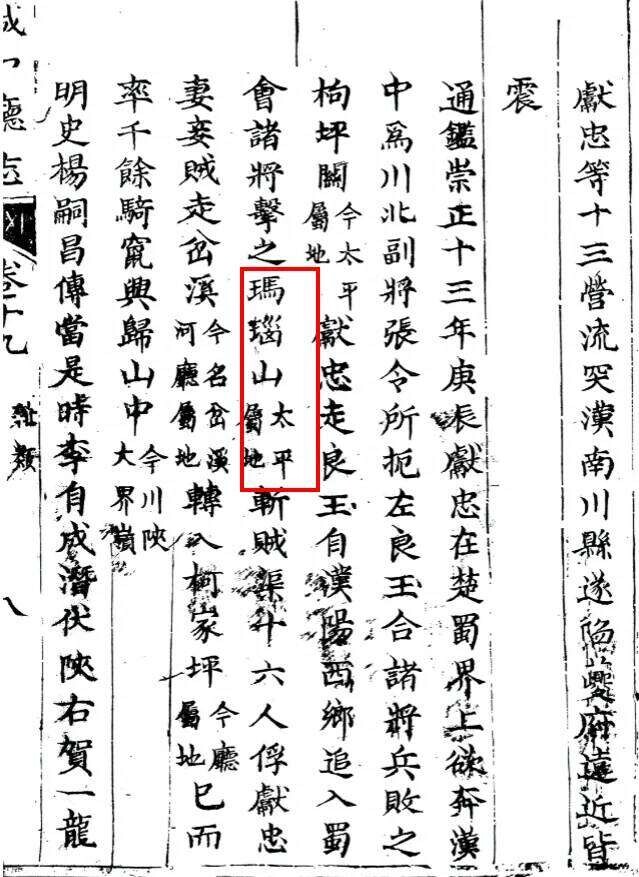 獻忠等十三營流突漢南川縣遂陷夔府遠近皆
震
通鑑崇正十三年庚辰獻忠在楚蜀界上欲奔漢
中爲川北副將張令所扼左良玉合諸將兵敗之
枸坪關今太平屬地獻忠走良玉自漢陽西鄉追入蜀
會諸將擊之瑪瑙山太平屬地斬賊渠十六人俘獻忠
妻妾賊走岔溪今名岔溪河廳屬地轉入柯家坪今廳屬地已而
率千餘騎竄興歸山中今川陝大界嶺
明史楊嗣昌傳當是時李自成潛伏陝右賀一龍
城口廳志 卷十九 雜類 八